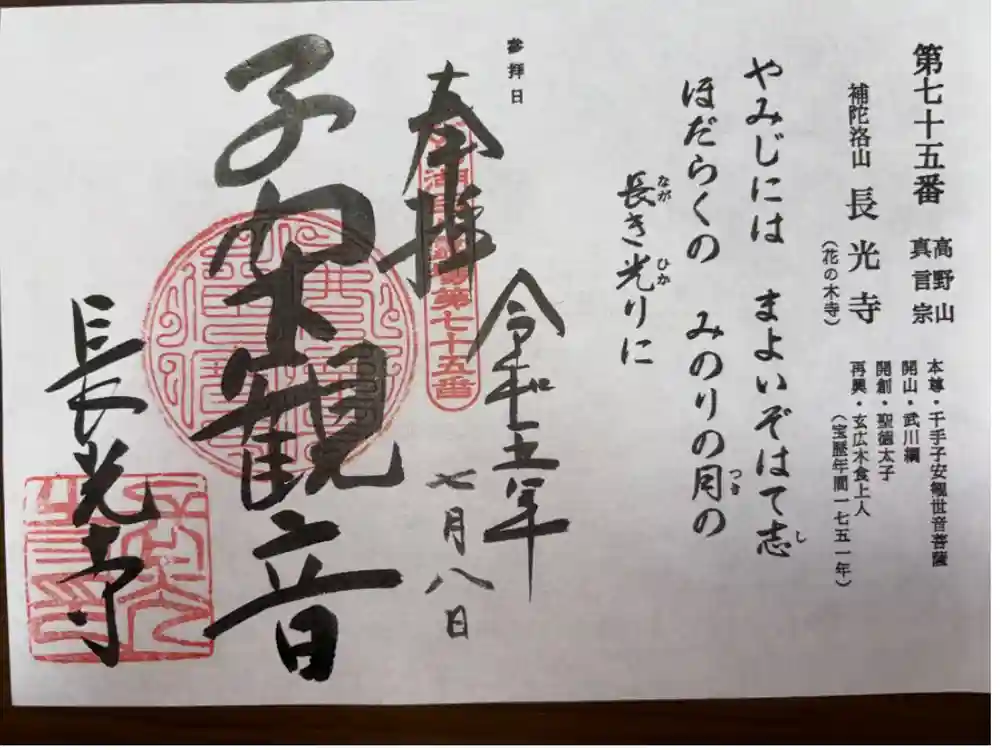 第七十五番 高野山真言宗
補陀洛山 長光寺
（花の木寺）
本尊・千手子安観世音菩薩
開山・武川綱
開創・聖徳太子
再興・玄広木食上人
（宝暦年間一七五一年）
やみじには まよいぞはて志し
ほだらくの みのりの月つきの
長ながき光ひかりに
参拝日
奉拝
令和七年
七月八日
第七十五番
子安観音
長光寺